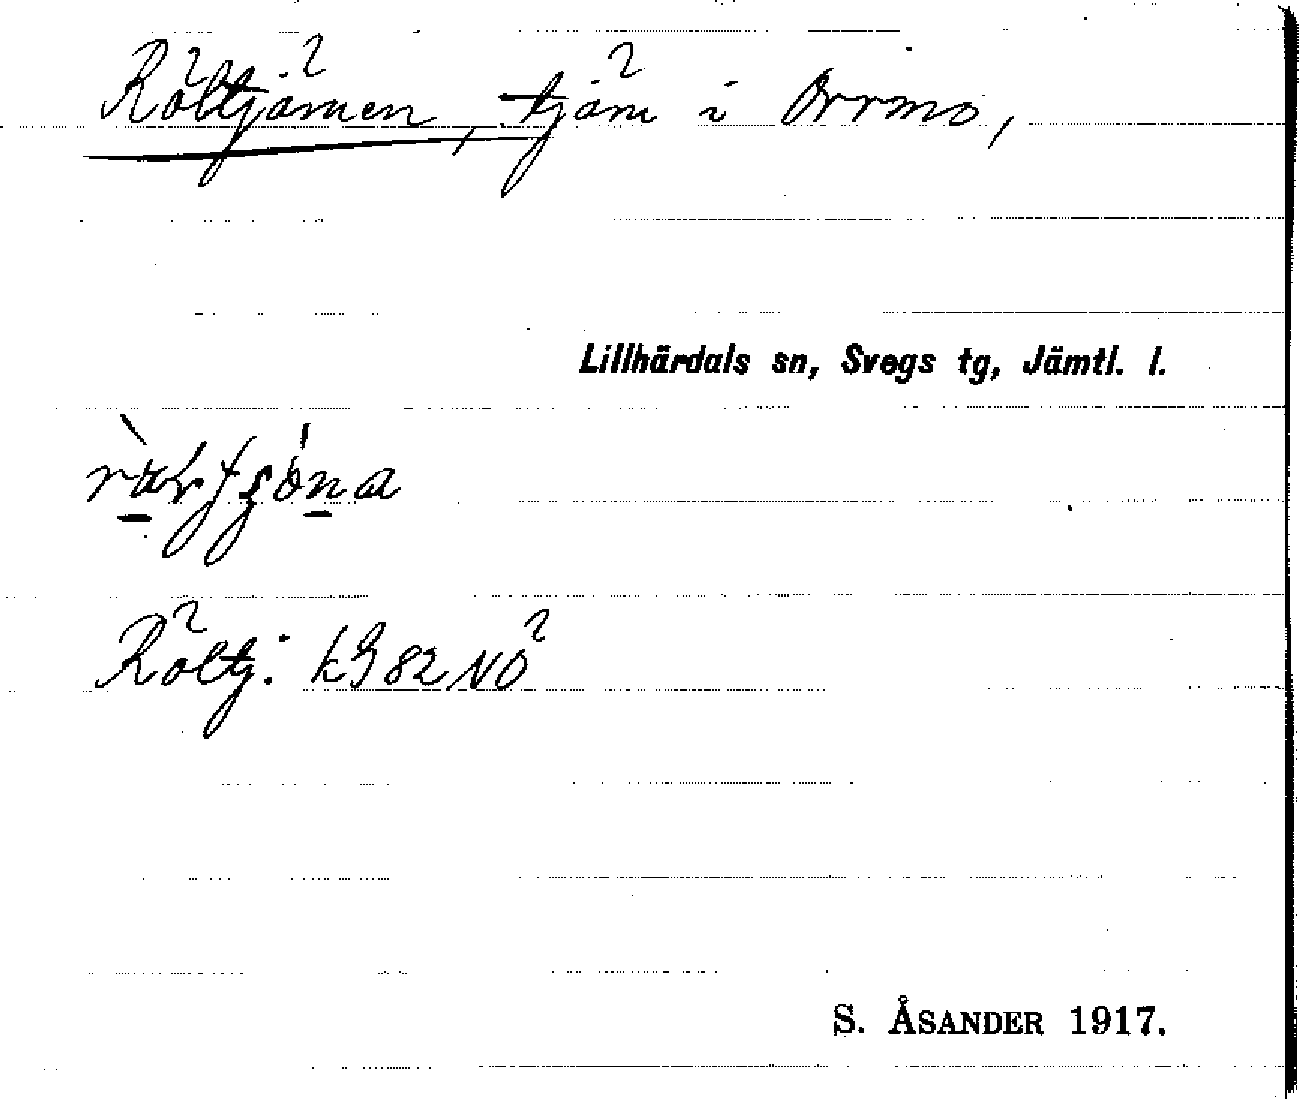 Röltjärnen, tjärn i Orrmo,
Lillhärdals sn, Svegs tg, Jämtl. l.
Röltj: kG 82 NO
S. ÅSANDER 1917.